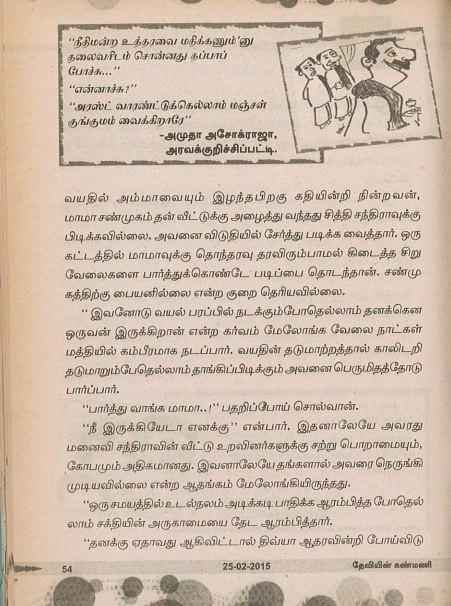 “நீதிமன்ற உத்தரவை மதிக்கணும்’னு
தலைவரிடம் சொன்னது தப்பாப்
போச்சு...”
“என்னாச்சு?”
“அரஸ்ட் வாரண்ட்டுக்கெல்லாம் மஞ்சள்
குங்குமம் வைக்கிறாரே”
-அமுதா அசோக்ராஜா,
அரவக்குறிச்சிப்பட்டி.
வயதில் அம்மாவையும் இழந்தபிறகு கதியின்றி நின்றவன்,
மாமா சண்முகம் தன் வீட்டுக்கு அழைத்து வந்தது சித்தி சந்திராவுக்கு
பிடிக்கவில்லை. அவனை விடுதியில் சேர்த்து படிக்க வைத்தார். ஒரு
கட்டத்தில் மாமாவுக்கு தொந்தரவு தரவிரும்பாமல் கிடைத்த சிறு
வேலைகளை பார்த்துக்கொண்டே படிப்பை தொடந்தான். சண்மு
கத்திற்கு பையனில்லை என்ற குறை தெரியவில்லை.
“ இவனோடு வயல் பரப்பில் நடக்கும்போதெல்லாம் தனக்கென
ஒருவன் இருக்கிறான் என்ற கர்வம் மேலோங்க வேலை நாட்கள்
மத்தியில் கம்பீரமாக நடப்பார். வயதின் தடுமாற்றத்தால் காலிடறி
தடுமாறும்பேதெல்லாம் தாங்கிப்பிடிக்கும் அவனை பெருமிதத்தோடு
பார்ப்பார்.
“பார்த்து வாங்க மாமா..!” பதறிப்போய் சொல்வான்.
“நீ இருக்கியேடா எனக்கு” என்பார். இதனாலேயே அவரது
மனைவி சந்திராவின் வீட்டு உறவினர்களுக்கு சற்று பொறாமையும்,
கோபமும் அதிகமானது. இவனாலேயே தங்களால் அவரை நெருங்கி
முடியவில்லை என்ற ஆதங்கம் மேலோங்கியிருந்தது.
“ஒருசமயத்தில் உடல்நலம் அடிக்கடி பாதிக்க ஆரம்பித்த போதெல்
லாம் சக்தியின் அருகாமையை தேட ஆரம்பித்தார்.
“தனக்கு ஏதாவது ஆகிவிட்டால் திவ்யா ஆதரவின்றி போய்விடு
54
25-02-2015
தேவியின் கண்மணி